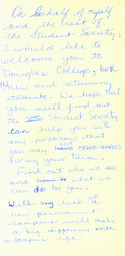 On behalf of myself
and the rest of
the Student Society,
I would like to
welcome you to
Douglas College, both
new and returning
students. We hope that
you will find out
to Student Society
can help you with
any problems that
you may
during your term.
Find out who we
and what we
can do for you.
With luck a
new
campus will make
a big difference with
campus life.